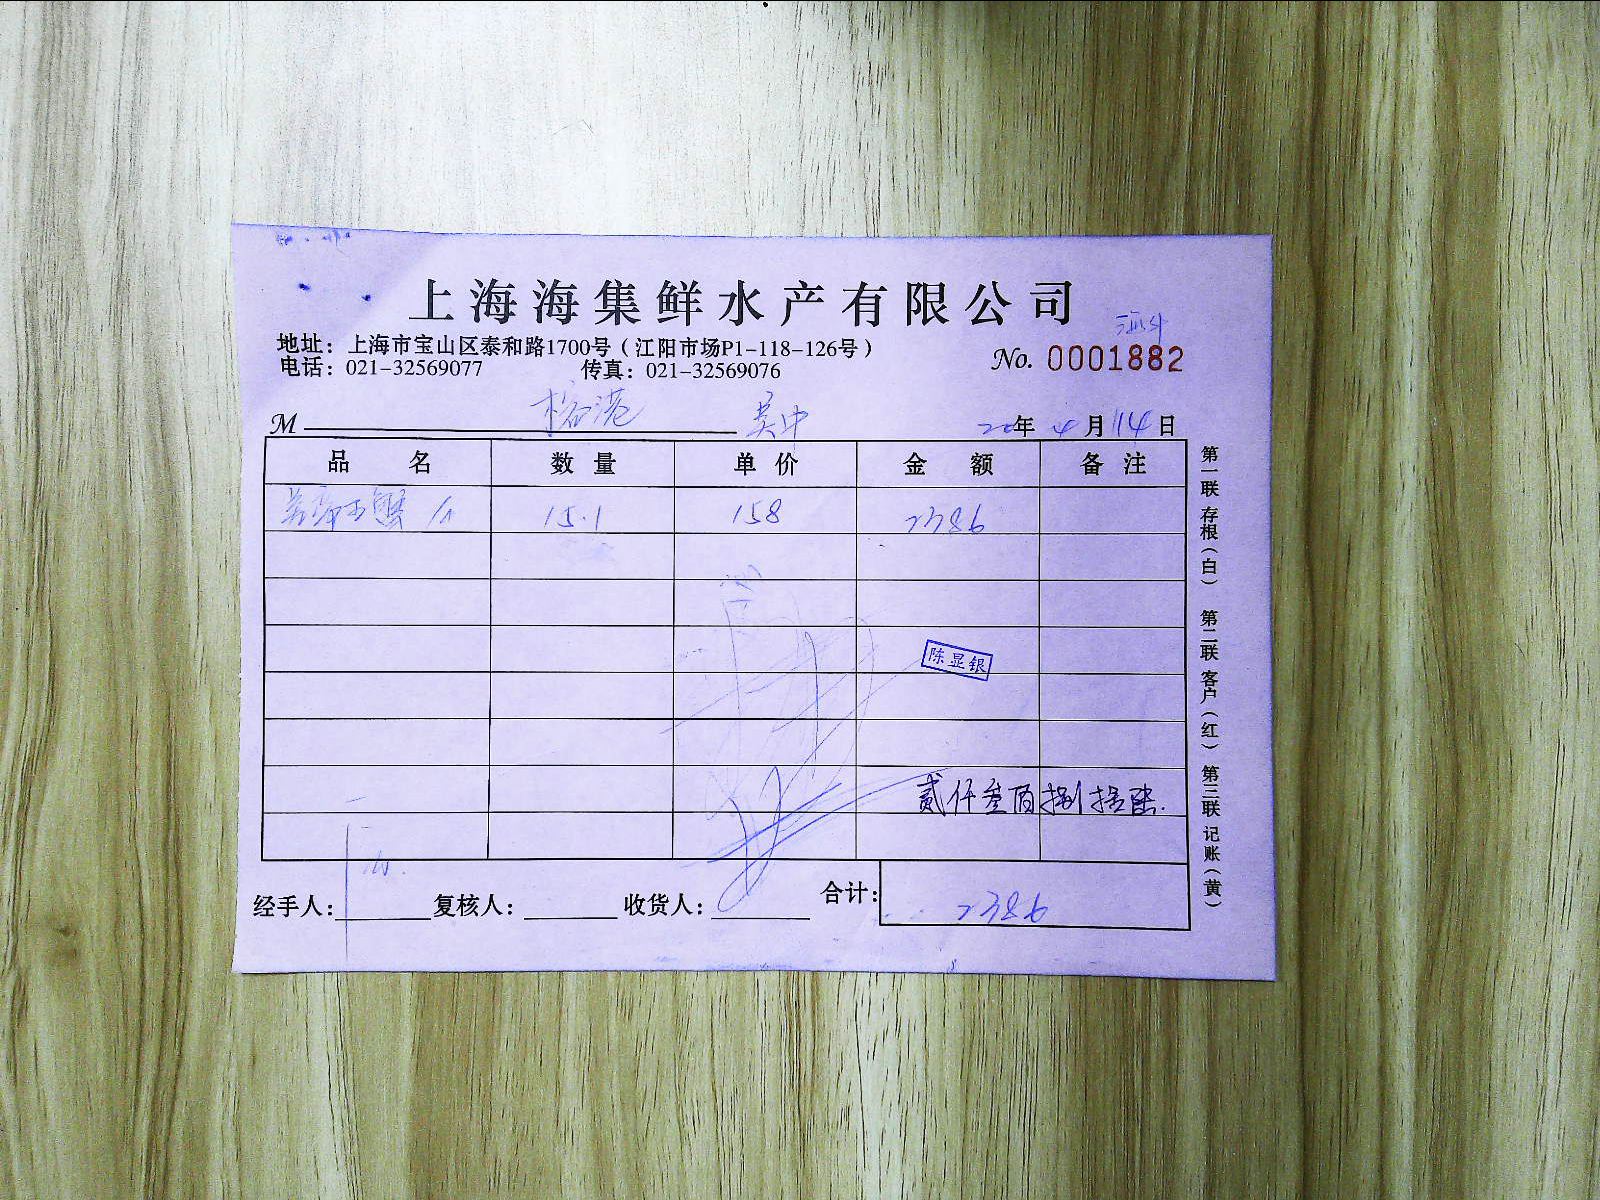 上海海集鲜水产有限公司
地址：上海市宝山区泰和路1700号（江阳市场P1-118-126号）
电话：021-32569077 传真：021-32569076
No. 0001882
M 榕港 吴中 20年4月14日
品名 数量 单价 金额 备注
蟹 15.1 158 2386
陈显银
贰仟叁佰捌拾陆.
经手人： 复核人： 收货人： 合计： 2386
第一联 存根（白） 第二联 客户（红） 第三联 记账（黄）